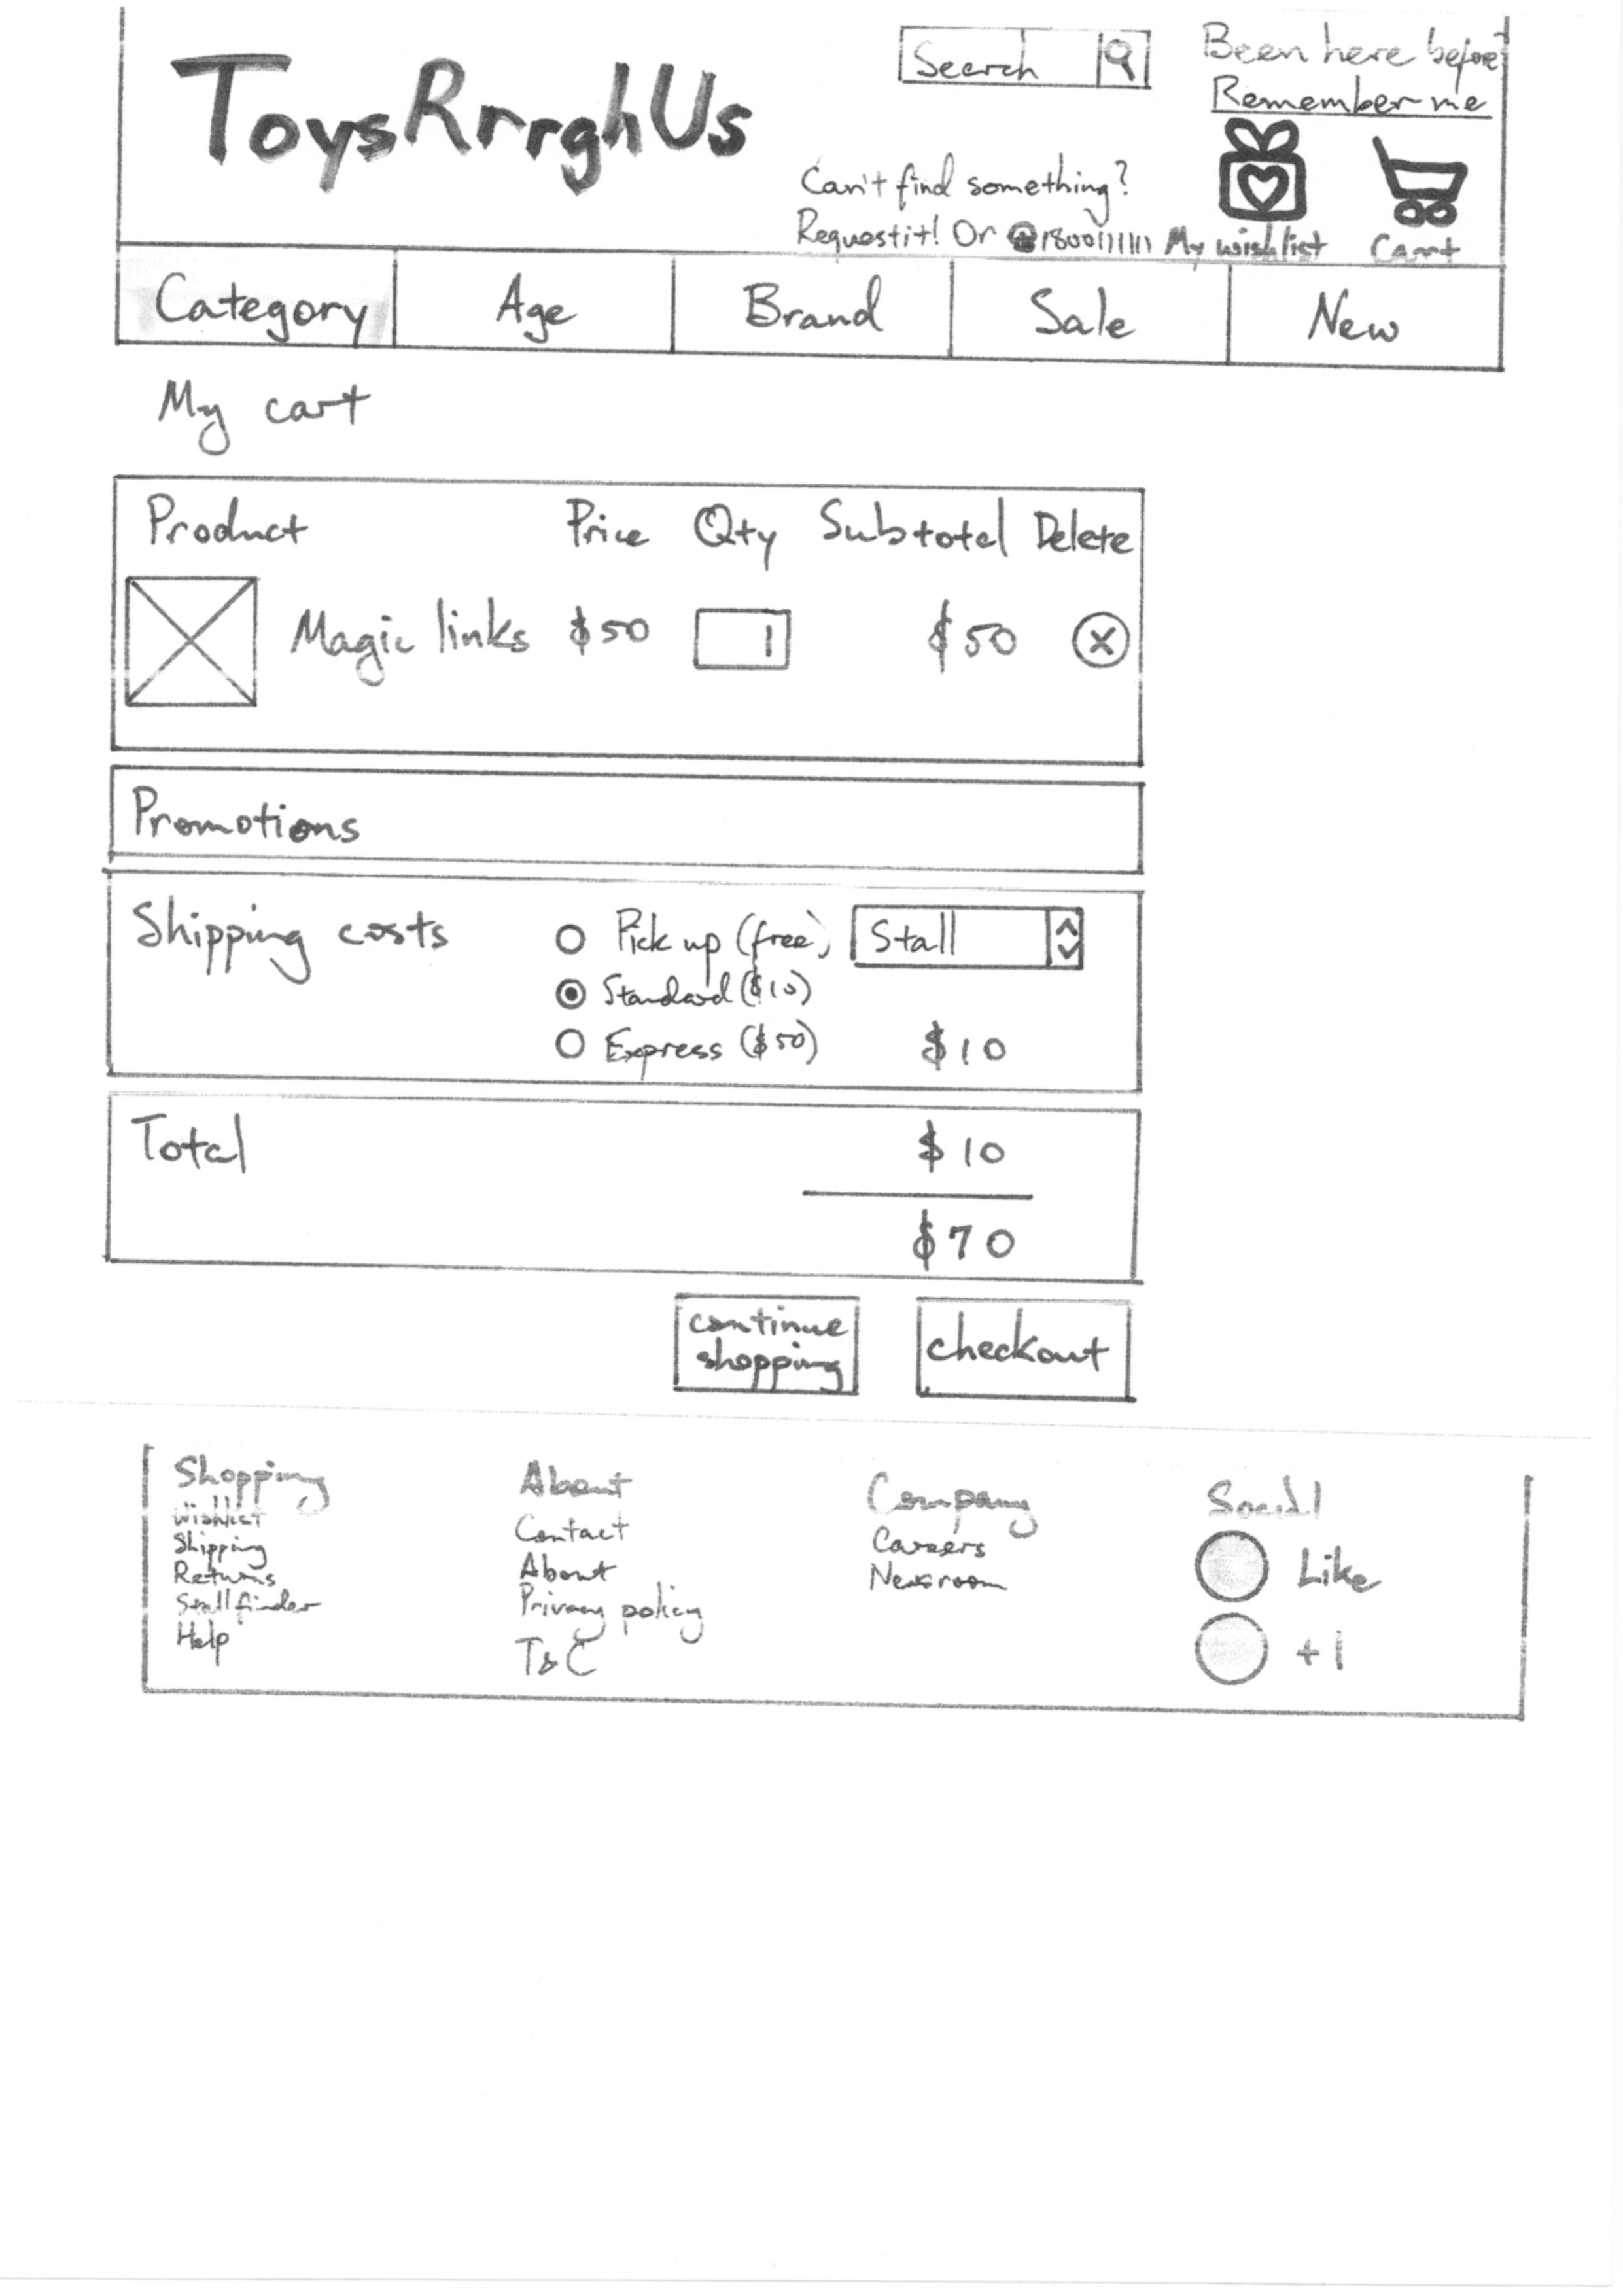 ToysRrrghUs
Search
Been here before?
Remember me
Can't find something?
Request it! Or ☎1800111111
My wishlist
Cart
Category Age Brand Sale New
My cart
Product Price Qty Subtotal Delete
Magic links $50 1 $50 X
Promotions
Shipping costs
Pick up (free) Stall
Standard ($10)
Express ($50) $10
Total $10
$70
continue
shopping
checkout
Shopping
Wishlist
Shipping
Returns
Stall finder
Help
About
Contact
About
Privacy policy
T&C
Company
Careers
Newsroom
Social
Like
+1